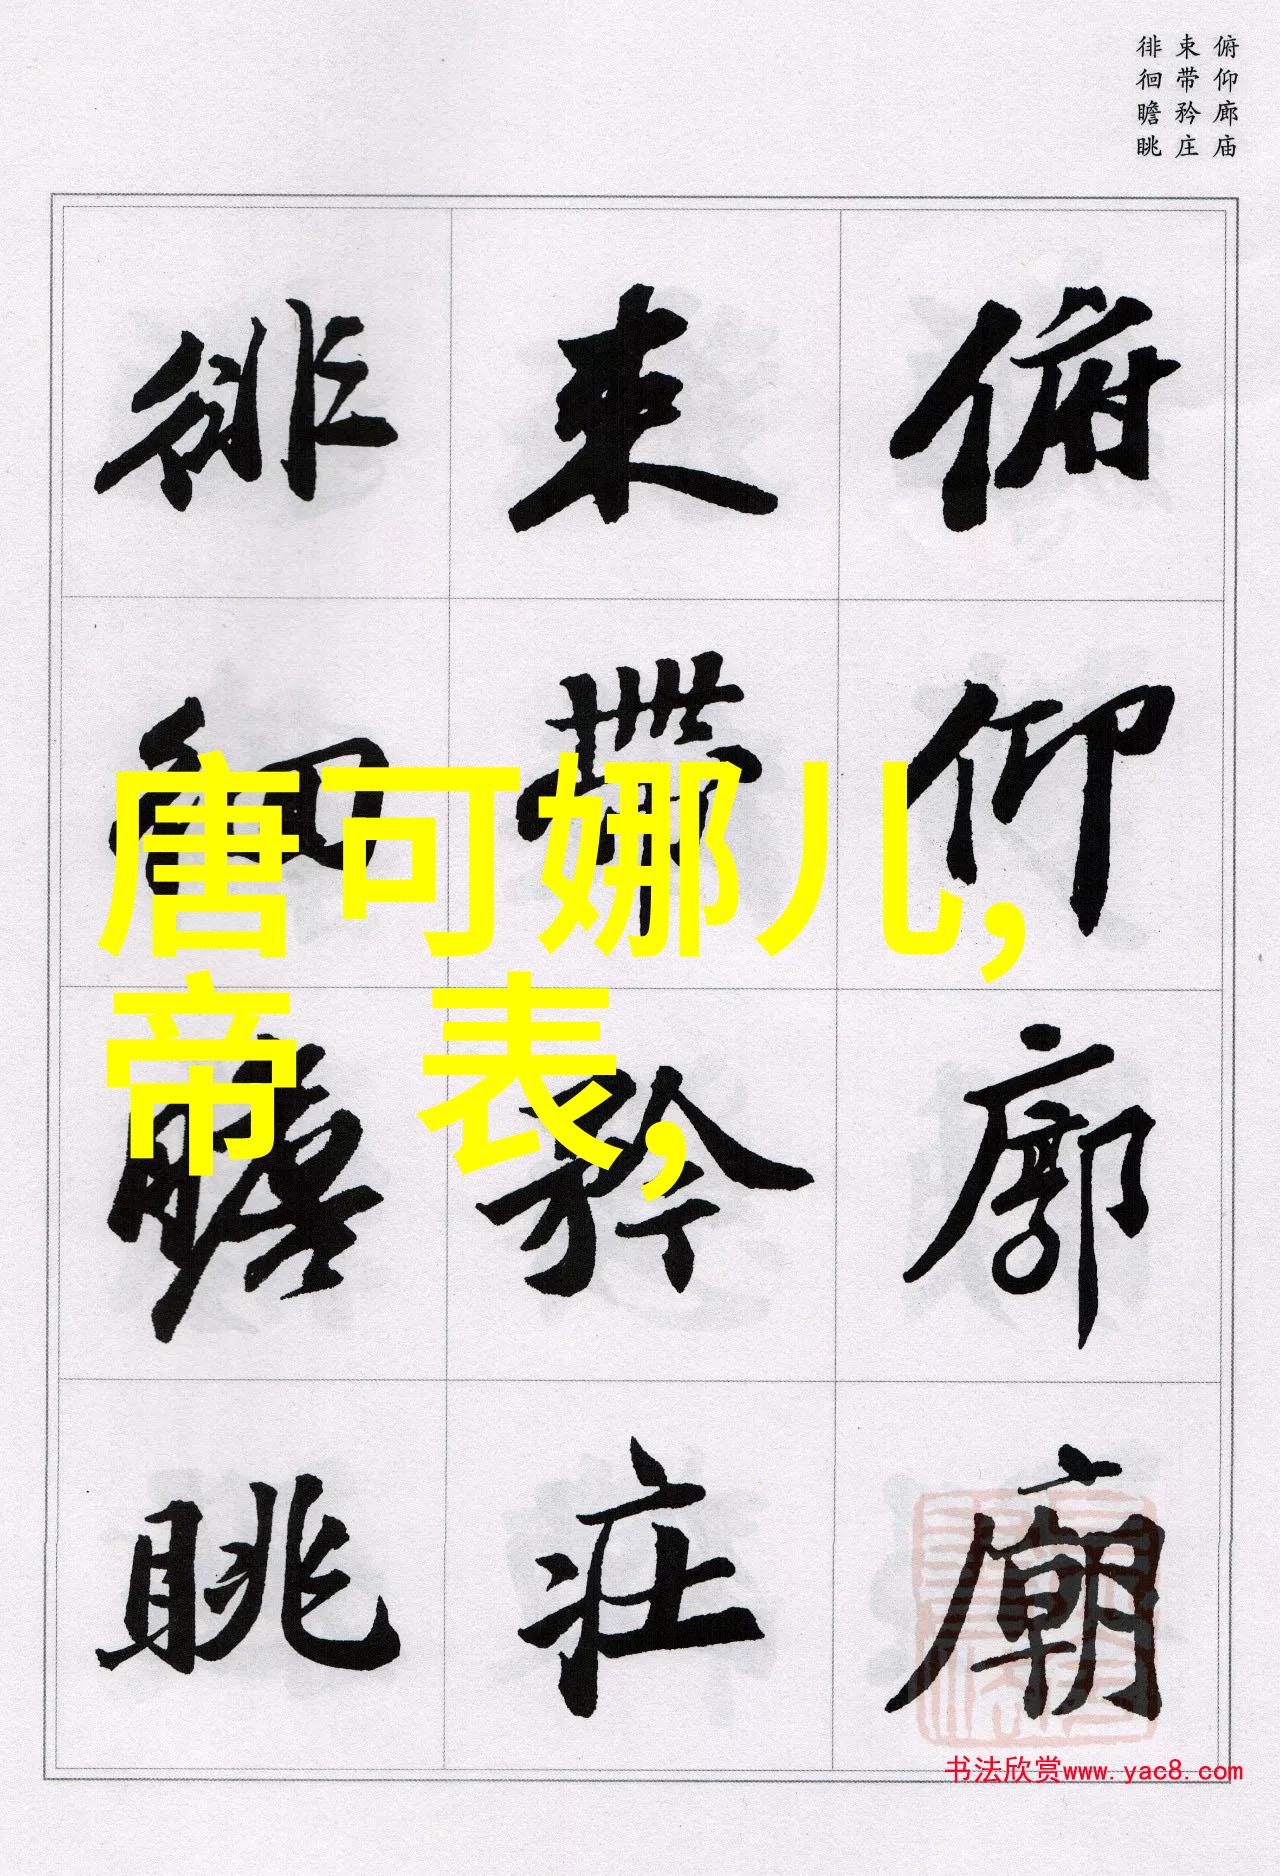 俯仰廊庙
束带矜庄
徘徊瞻眺
俯仰廓廟
束帶矜莊
徘徊瞻眺
唐可娜儿,
帝 表,
书法欣赏www.yac8.com